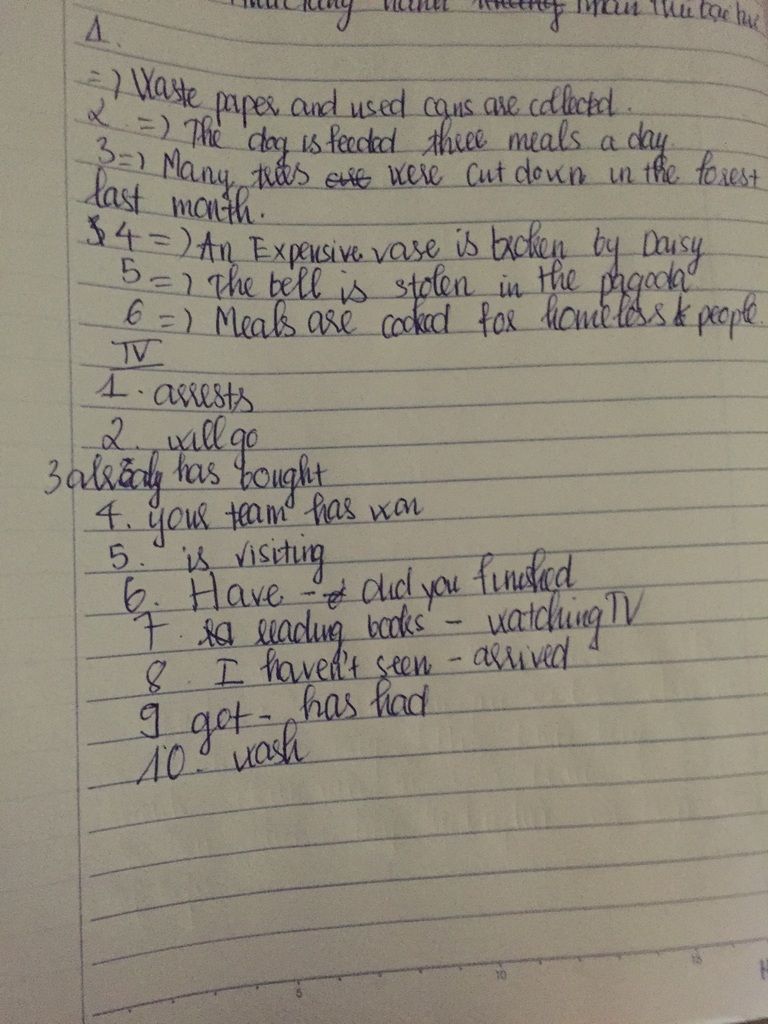 hand than
1.
=) Waste paper and used cans are collected.
2 =) The dog is feeded three meals a day
3=) Many trees are were cut down in the forest
last month.
4 =) An Expensive vase is broken by Daisy
5 =) The bell is stolen in the pagoda
6 =) Meals are cooked for homeless people.
IV
1. arrests
2. will go
3 already has bought
4. your team has won
5. is visiting
6. Have - did you finished
7. reading books - watching TV
8. I haven't seen - arrived
9 got - has had
10. wash
5 10 15